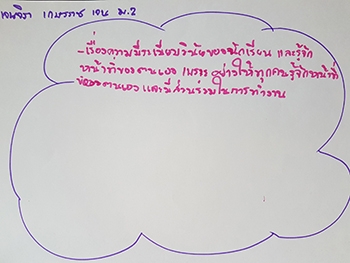 เจนจิรา เกษรราช เจน ม.2
-เรื่องความมีระเบียบวินัยของนักเรียน และรู้จัก
หน้าที่ของตนเอง เพราะ อยากให้ทุกคนรู้จักหน้าที่
ของตนเอง และมีส่วนร่วมในการทำงาน